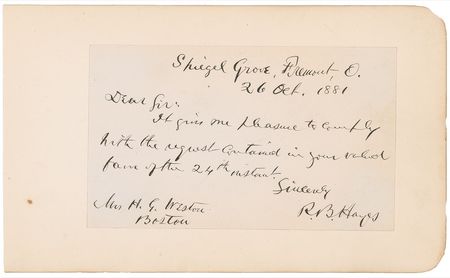 Spiegel Grove, Fremont, O.
26 Oct. 1881
Dear Sir:
It gives me pleasure to comply
with the request contained in your valued
favor of the 24th instant.
Sincerely
R. B. Hayes
Mrs H. G. Weston
Boston